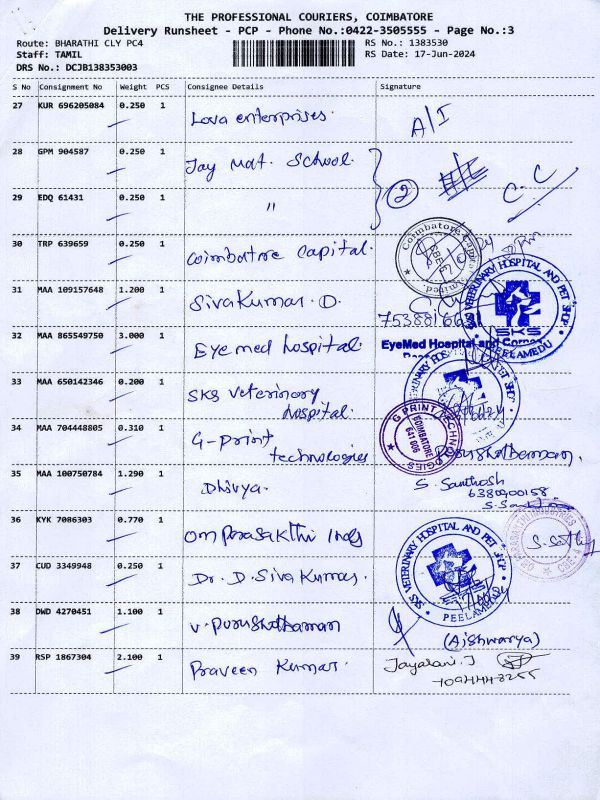 THE PROFESSIONAL COURIERS, COIMBATORE
Delivery Runsheet - PCP - Phone No.:0422-3505555 - Page No.:3
Route: BHARATHI CLY PC4
RS No.: 1383530
Staff: TAMIL
RS Date: 17-Jun-2024
DRS No.: DCJB138353003
S No Consignment No Weight PCS Consignee Details Signature
27 KUR 696205084 0.250 1 Lova enterprises. A/I
28 GPM 904587 0.250 1 Jay Mat. School.
2 C.C
29 EDQ 61431 0.250 1 "
30 TRP 639659 0.250 1 Coimbatore Capital. Coimbatore
31 MAA 109157648 1.200 1 SivaKumar. D.
SKS VETERINARY HOSPITAL AND PET SHOP
SKS
PEELAMEDU
32 MAA 865549750 3.000 1 Eye med hospital. EyeMed Hospital and
33 MAA 650142346 0.200 1 SKS Veterinary
hospital.
34 MAA 704448805 0.310 1 G-Print
technologies
G PRINT TECHNOLOGIES
COIMBATORE
641 006
Purushothaman.
35 MAA 100750784 1.290 1 Dhivya. S. Santhosh
6380900158
36 KYK 7086303 0.770 1 Om Parasakthi Inds
37 CUD 3349948 0.250 1 Dr. D. Siva Kumar.
SKS VETERINARY HOSPITAL AND PET SHOP
SKS
PEELAMEDU
38 DWD 4270451 1.100 1 V. Purushothaman (Aishwarya)
39 RSP 1867304 2.100 1 Praveen Kumar. Jayarani. J